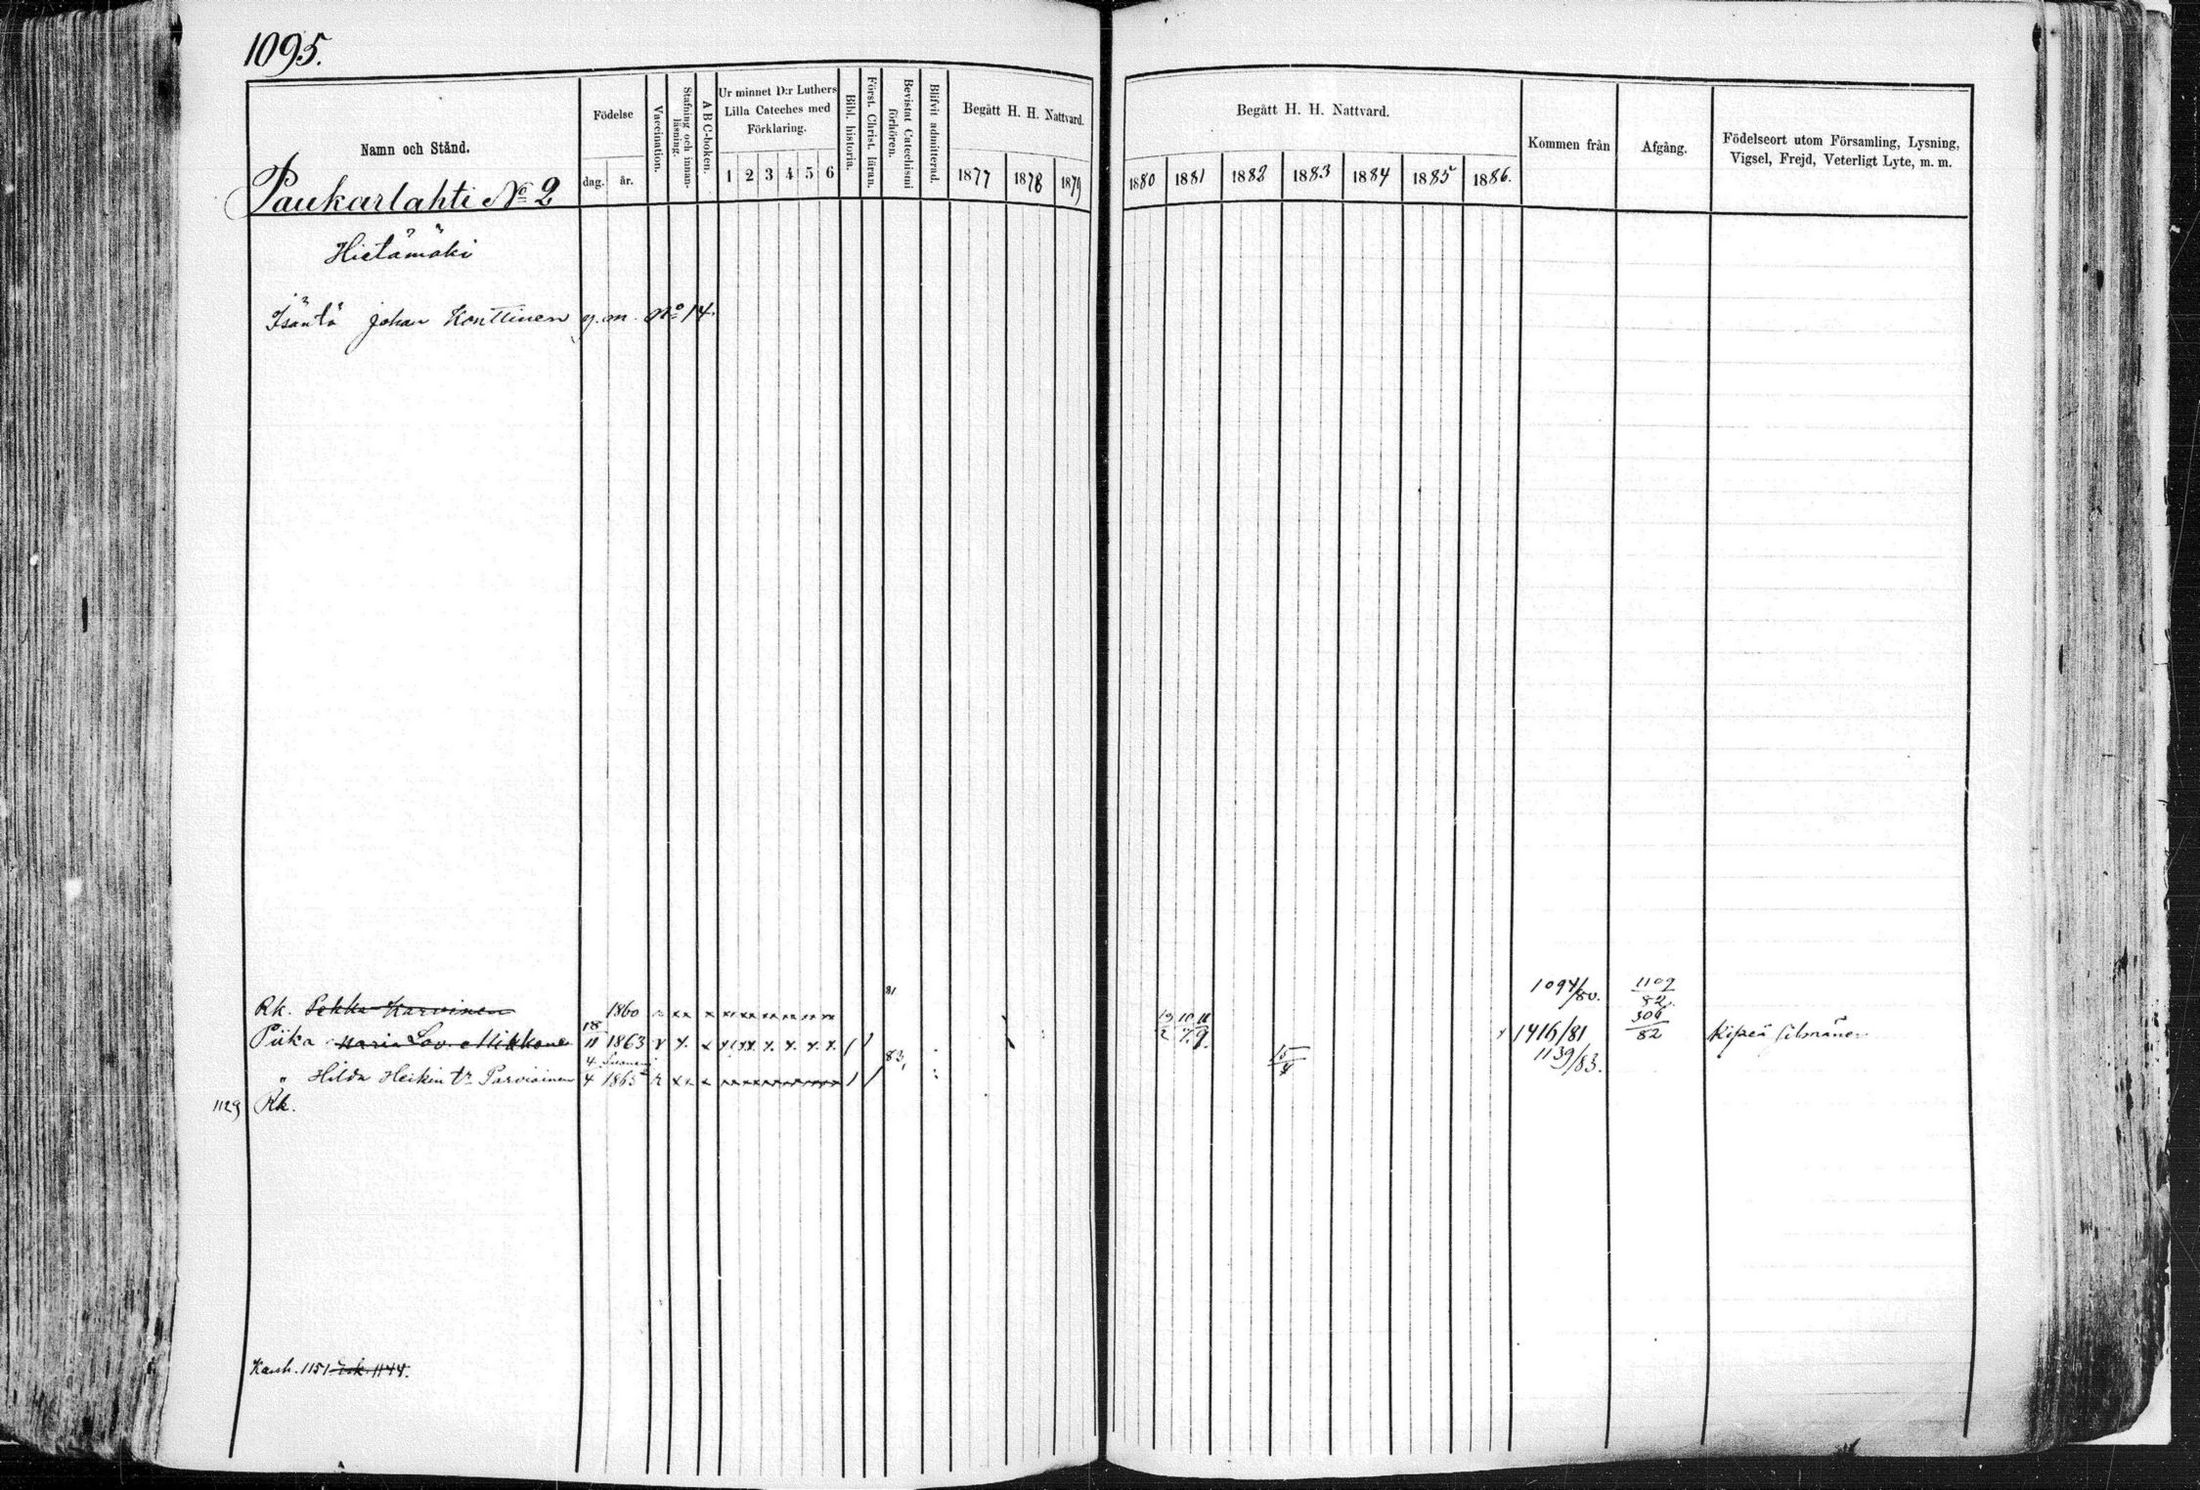 1095.
Namn och Stånd.
Födelse
dag.
år.
Vaccination.
Stafning och innanläsning.
A B C-boken.
Ur minnet D:r Luthers Lilla Cateches med Förklaring.
1 2 3 4 5 6
Bibl. historia.
Först. Christ. läran.
Bevistat Catechismi förhören.
Blifvit admitterad.
Begått H. H. Nattvard.
1877 1878 1879
Begått H. H. Nattvard.
1880 1881 1882 1883 1884 1885 1886.
Kommen från
Afgång.
Födelseort utom Församling, Lysning, Vigsel, Frejd, Veterligt Lyte, m. m.
Paukarlahti No 2
Hietämäki
Isäntä Johan Konttinen y. m. No 14.
Rk. Pekka Karvinen 1860 81 1094/80. 1109/82.
Piika Maria Lov. Mikkone 18/11 1863 1416/81 306/82 Kipeä
" Hilda Heikin tr Parviainen 4/4 1865 83. 15/4 1139/83.
1129 Rk.
Kansh. 1151 1144.